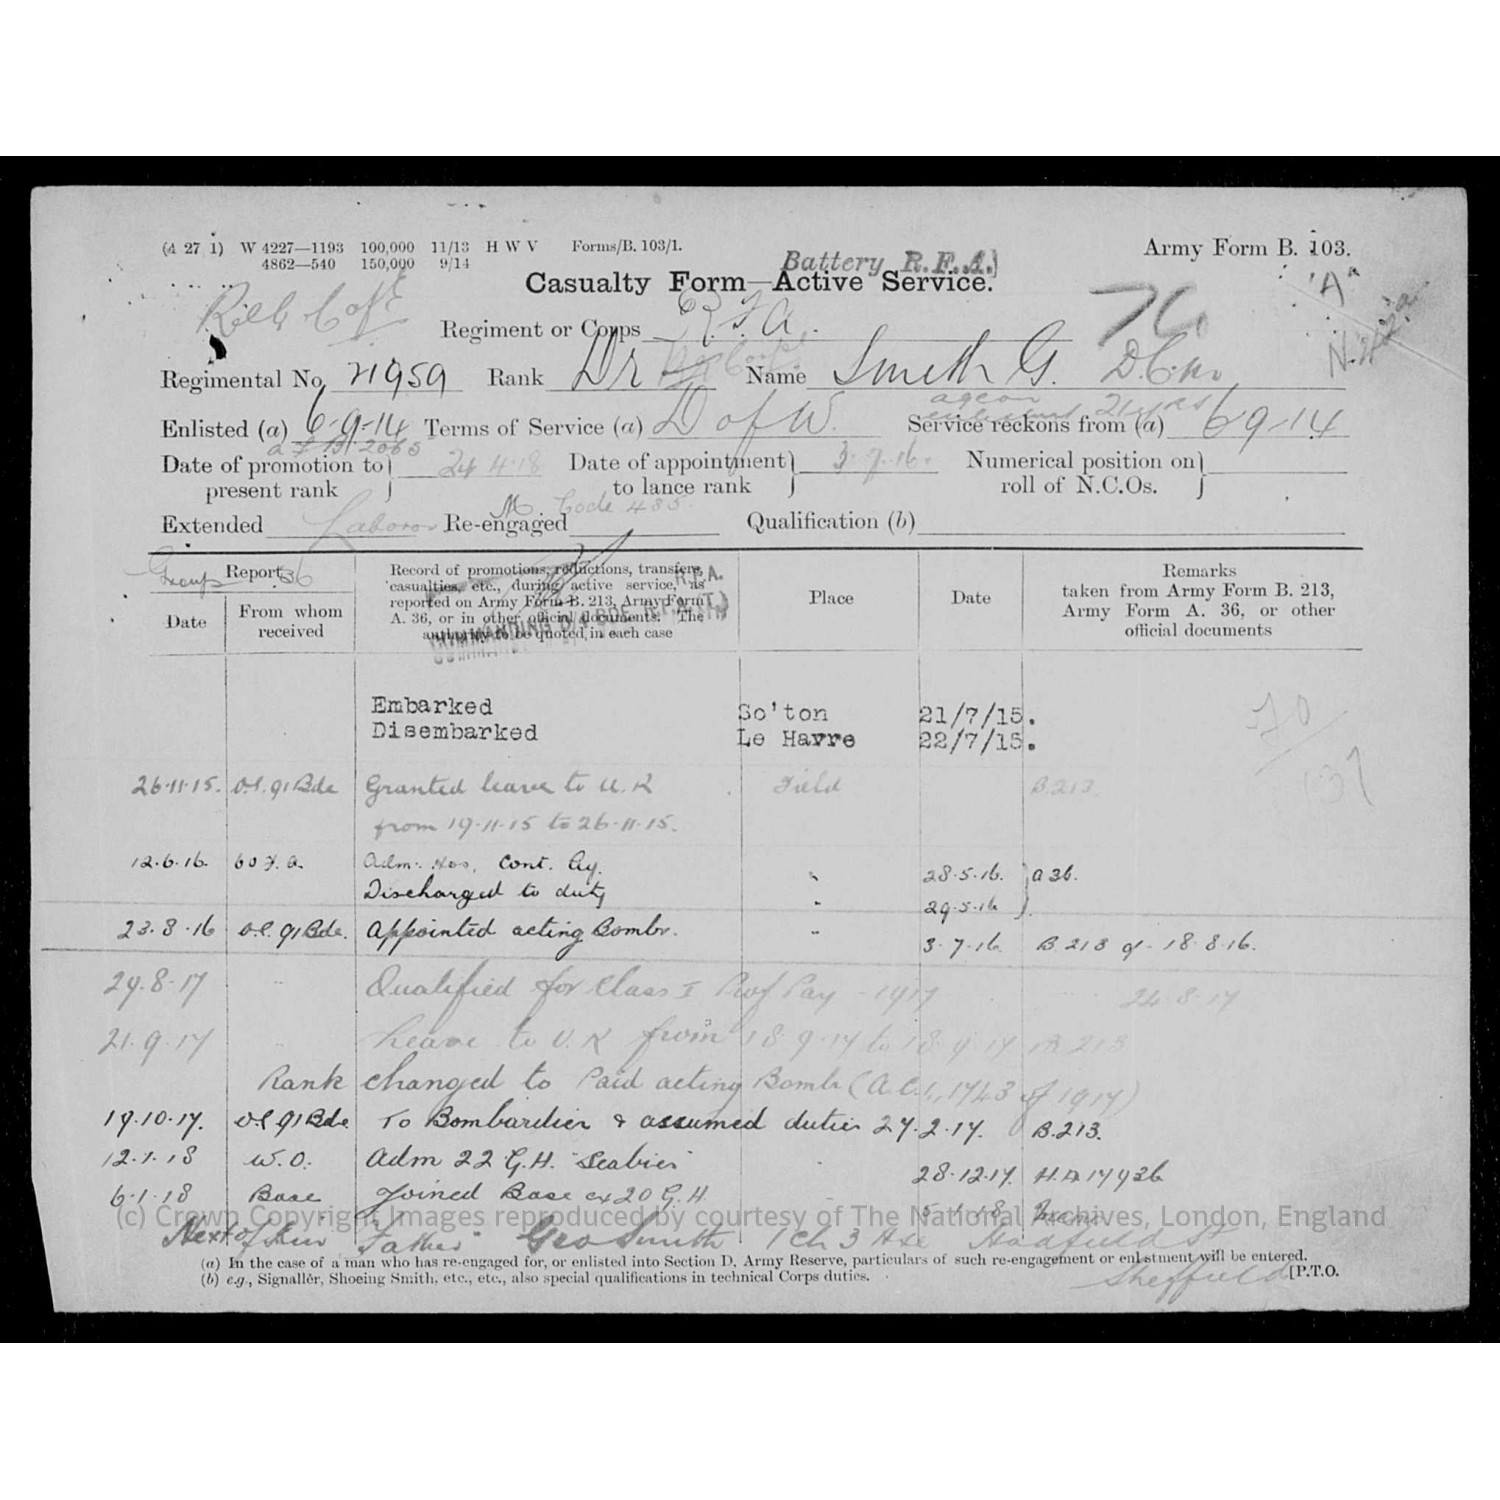 (A 27 1) W 4227—1193 100,000 11/13 H W V Forms/B. 103/1.
4862—540 150,000 9/14
Army Form B. 103.
Battery R.F.A.)
Casualty Form—Active Service.
"A"
Regiment or Corps R.F.A.
76
Regimental No. 71959 Rank Dr Name Smith G. D.C.M.
Enlisted (a) 6-9-14 Terms of Service (a) D of W. Service reckons from (a) 6 9-14
Date of promotion to present rank 24 4 18 Date of appointment to lance rank 3-7-16. Numerical position on roll of N.C.Os.
Code 485
Extended Laborer Re-engaged Qualification (b)
Group 36
Report
Date
From whom received
Record of promotions, reductions, transfers, casualties, etc., during active service, as reported on Army Form B. 213, Army Form A. 36, or in other official documents. The authority to be quoted in each case
Place
Date
Remarks
taken from Army Form B. 213, Army Form A. 36, or other official documents
Embarked So'ton 21/7/15.
Disembarked Le Havre 22/7/15.
26-11-15. O.C. 91 Bde Granted leave to U.K Field B.213.
from 19-11-15 to 26-11-15.
12.6.16. 60 F.A. Adm: Hos, Cont. " 28.5.16. A 36.
Discharged to duty " 29.5.16
23.8.16 O.C. 91 Bde. Appointed acting Bombr. " 3-7-16 B 213 of 18.8.16.
29.8.17 " Qualified for Class I Prof Pay - 1917 24.8.17
21.9.17 " Leave to U.K from 18.9.17 to 18.9.17 B 213
Rank changed to Paid acting Bombr (A.C.I, 1743 of 1917)
19.10.17. O.C 91 Bde To Bombardier & assumed duties 27.2.17. B.213.
12.1.18 W.O. Adm 22 G.H. "Scabies" 28.12.17. H.A 17936
6.1.18 Base Joined Base ex 20 G.H. 5.1.18
Next of Kin Father Geo Smith 1 Ch 3 Hse Hadfield St
Sheffield
(c) Crown Copyright Images reproduced by courtesy of The National Archives, London, England
(a) In the case of a man who has re-engaged for, or enlisted into Section D, Army Reserve, particulars of such re-engagement or enlistment will be entered.
(b) e.g., Signaller, Shoeing Smith, etc., etc., also special qualifications in technical Corps duties.
[P.T.O.